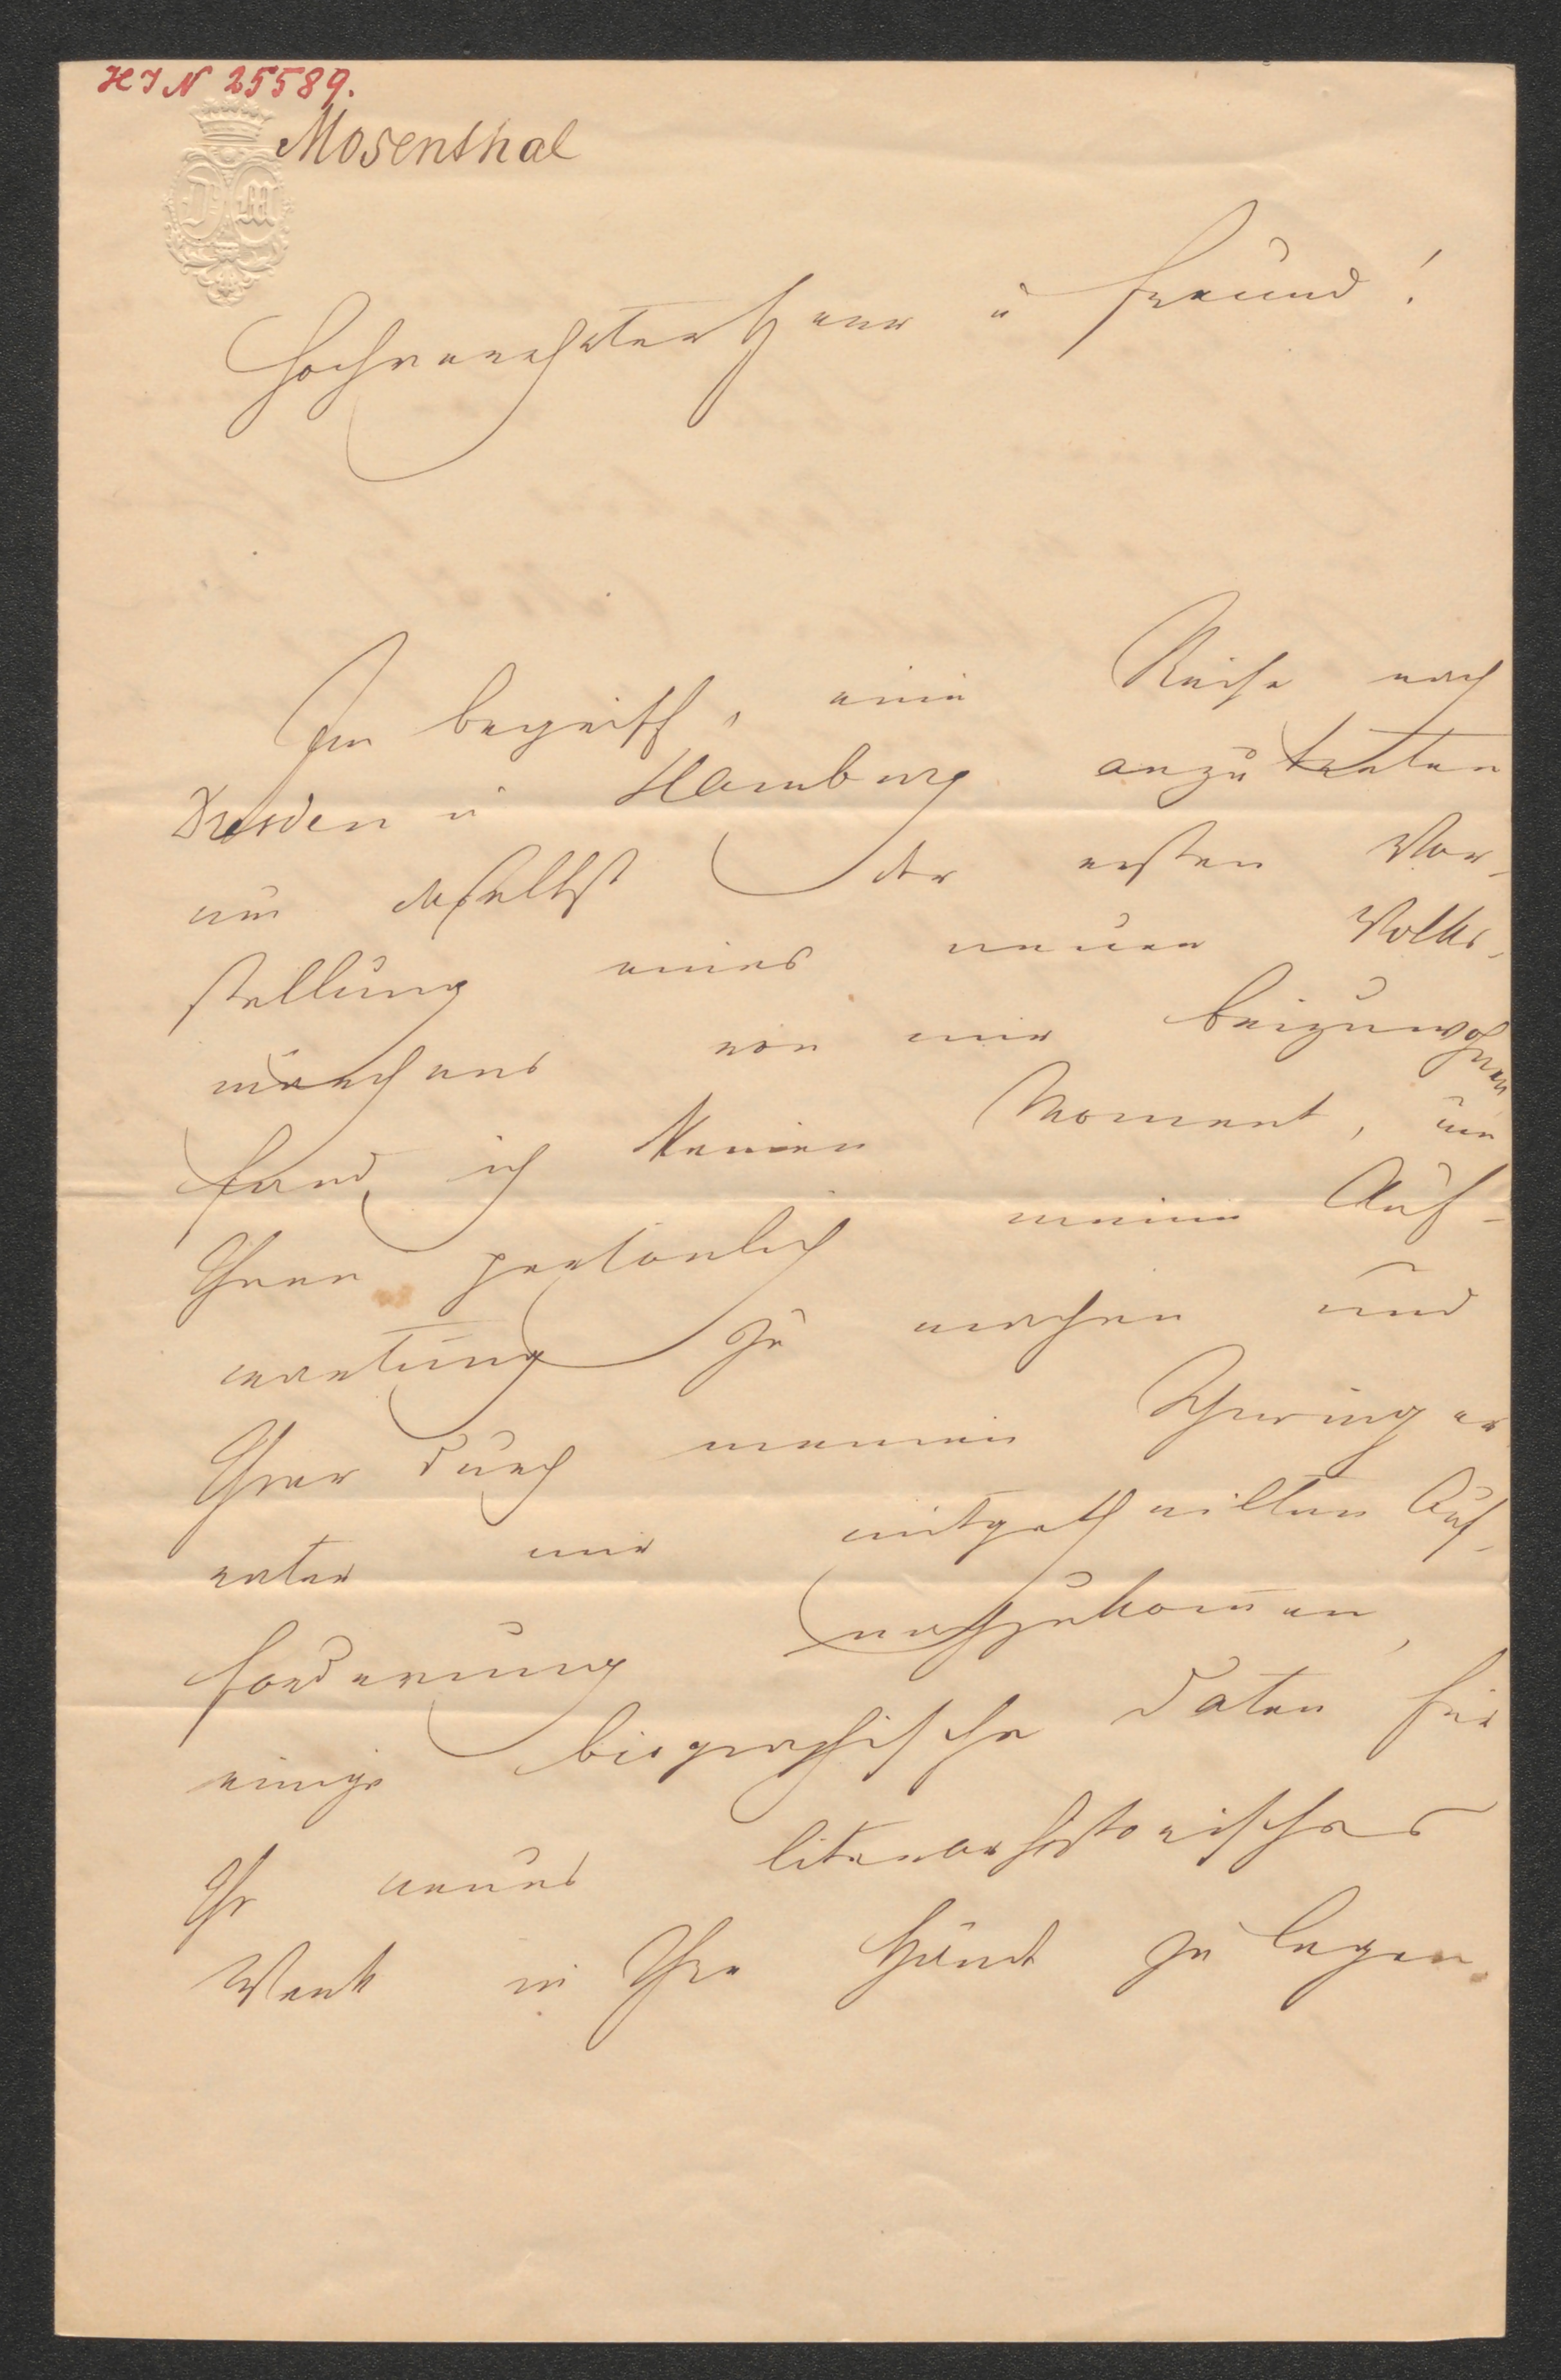 HIN 25589.
Mosenthal
DM
Hochverehrter Herr u Freund!
Im Begriff, eine Reise nach
Dresden u Hamburg anzutreten
um daselbst der ersten Vor-
stellung eines neuen Volks-
märchens von mir beizuwohnen
fand ich keinen Moment, um
Ihnen persönlich meine Auf-
wartung zu machen und
Ihrer durch meinen Schwieger
vater mir mitgetheilten Auf-
forderung nachzukom̄en,
einige biographische Daten für
Ihr neues literarhistorisches
Werk in Ihre Hände zu legen.